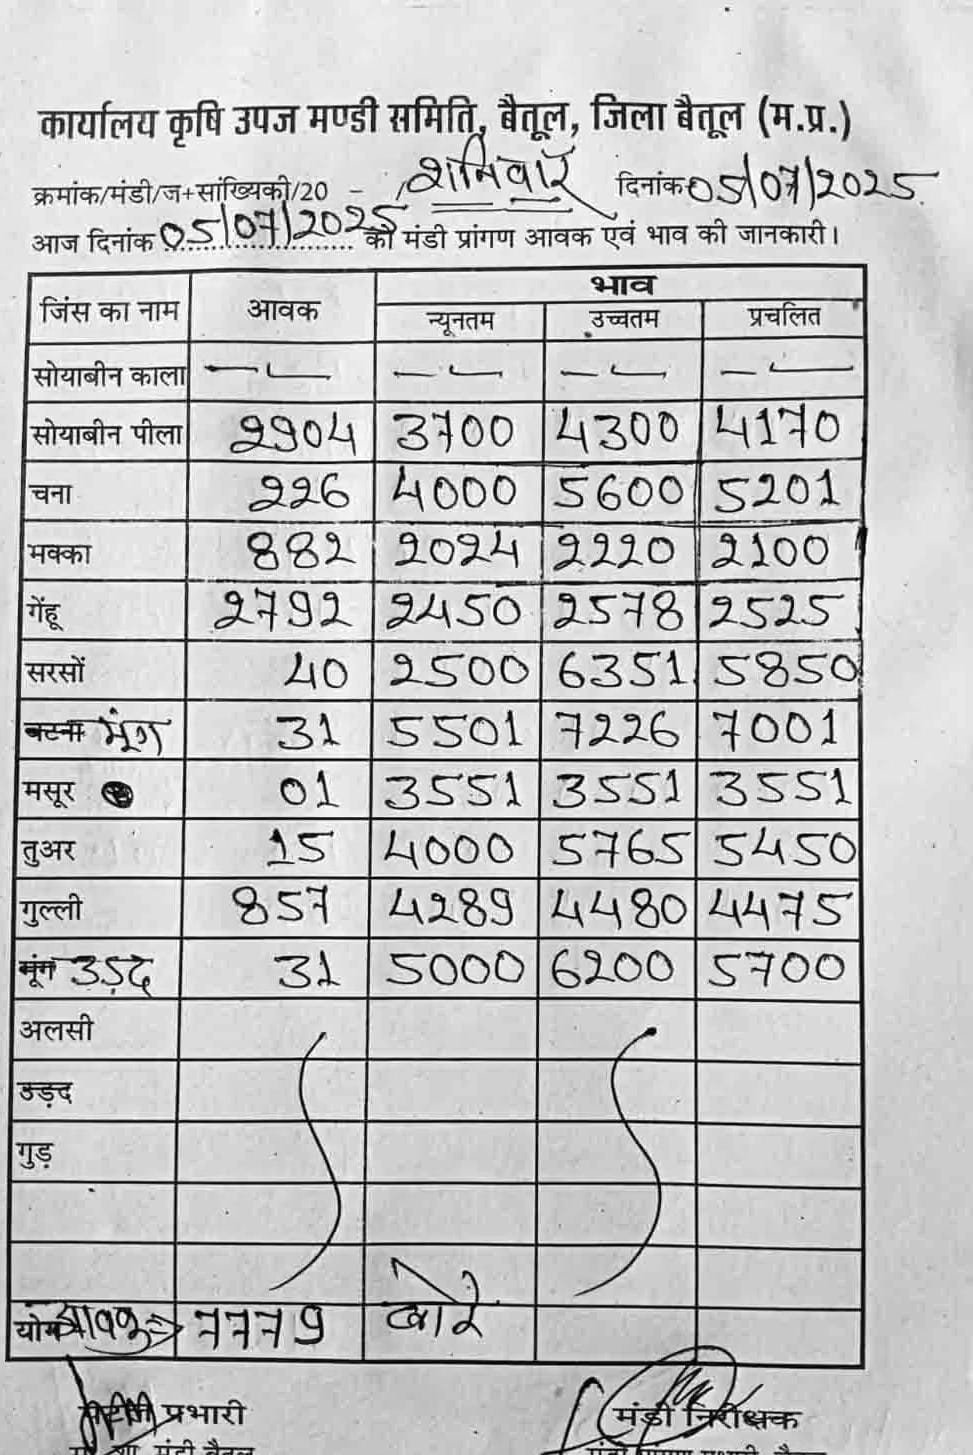 कार्यालय कृषि उपज मण्डी समिति, बैतूल, जिला बैतूल (म.प्र.)
क्रमांक/मंडी/ज+सांख्यिकी/20 - शनिवार दिनांक 05/07/2025
आज दिनांक 05/07/2025 को मंडी प्रांगण आवक एवं भाव की जानकारी।
भाव
जिंस का नाम आवक न्यूनतम उच्चतम प्रचलित
सोयाबीन काला — — — — — — — —
सोयाबीन पीला 2904 3700 4300 4170
चना 226 4000 5600 5201
मक्का 882 2024 2220 2100
गेंहू 2792 2450 2578 2525
सरसों 40 2500 6351 5850
बटना मूंग 31 5501 7226 7001
मसूर 01 3551 3551 3551
तुअर 15 4000 5765 5450
गुल्ली 857 4289 4480 4475
मूंग उड़द 31 5000 6200 5700
अलसी
उड़द
गुड़
योग आवक => 7779 बोरे
प्रभारी मंडी निरीक्षक